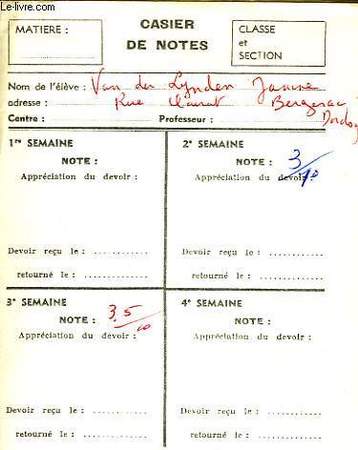 Le-livre.com
MATIERE :
CASIER
DE NOTES
CLASSE
et
SECTION
Nom de l'élève : Van der Lynden Janine
adresse : Rue Bergerac
Centre : Professeur : Dordog
1re SEMAINE
NOTE :
Appréciation du devoir :
Devoir reçu le : ............
retourné le : ............
2e SEMAINE
NOTE : 3/10
Appréciation du devoir :
Devoir reçu le : ............
retourné le : ............
3e SEMAINE
NOTE : 3.5/10
Appréciation du devoir :
Devoir reçu le : ............
retourné le : ............
4e SEMAINE
NOTE :
Appréciation du devoir :
Devoir reçu le : ............
retourné le : ............